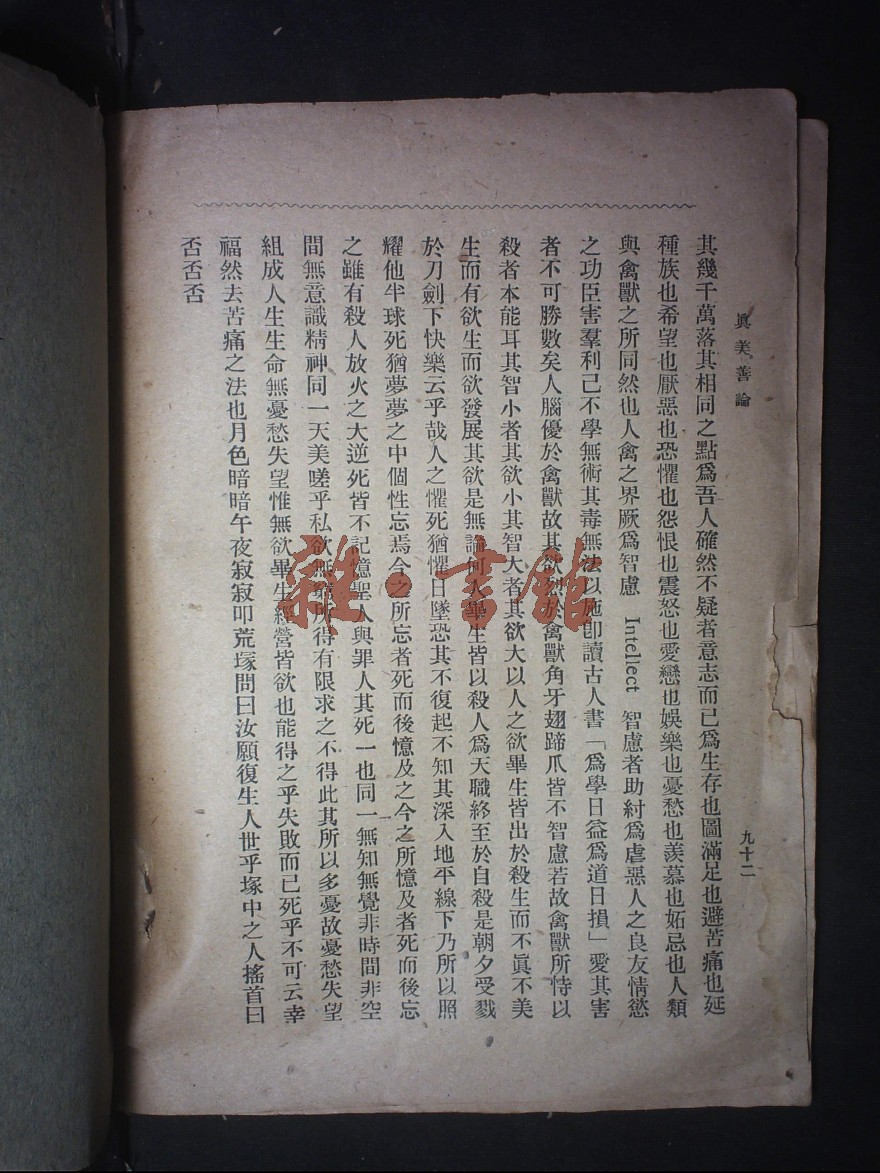 眞美善論
九十二
其幾千萬落其相同之點爲吾人確然不疑者意志而已爲生存也圖滿足也避苦痛也延
種族也希望也厭惡也恐懼也怨恨也震怒也愛戀也娛樂也憂愁也羨慕也妬忌也人類
與禽獸之所同然也人禽之界厥爲智慮 Intellect 智慮者助紂爲虐惡人之良友情慾
之功臣害羣利己不學無術其毒無法以施卽讀古人書「爲學日益爲道日損」愛其害
者不可勝數矣人腦優於禽獸故其欲烈於禽獸角牙翅蹄爪皆不智慮若故禽獸所恃以
殺者本能耳其智小者其欲小其智大者其欲大以人之欲畢生皆出於殺生而不眞不美
生而有欲生而欲發展其欲是無論何人畢生皆以殺人爲天職終至於自殺是朝夕受戮
於刀劍下快樂云乎哉人之懼死猶懼日墜恐其不復起不知其深入地平線下乃所以照
耀他半球死猶夢夢之中個性忘焉今之所忘者死而後憶及之今之所憶及者死而後忘
之雖有殺人放火之大逆死皆不記憶聖人與罪人其死一也同一無知無覺非時間非空
間無意識精神同一天美嗟乎私欲無窮所得有限求之不得此其所以多憂故憂愁失望
組成人生生命無憂愁失望惟無欲畢生經營皆欲也能得之乎失敗而已死乎不可云幸
福然去苦痛之法也月色暗暗午夜寂寂叩荒塚問曰汝願復生人世乎塚中之人搖首曰
否否否
雜·書館